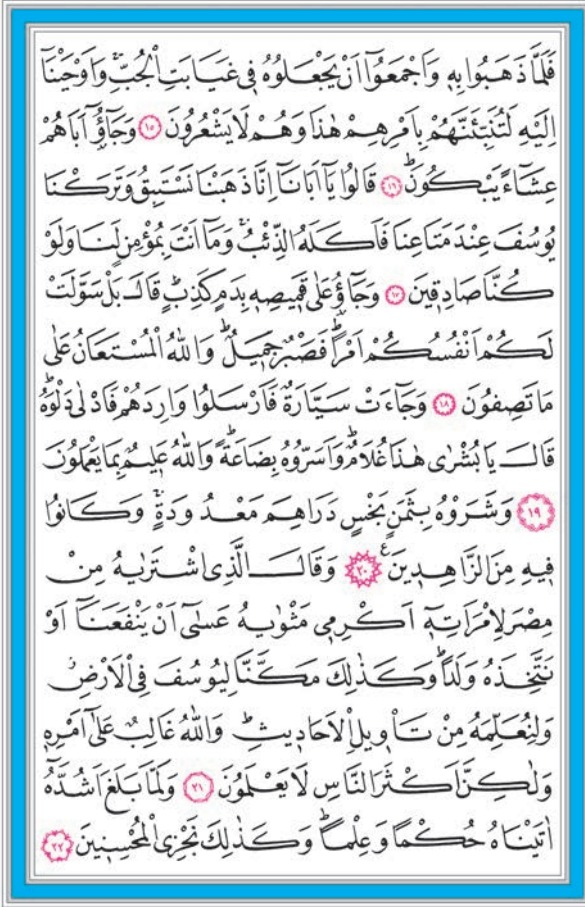 فَلَمَّا ذَهَبُوا بِهٖ وَاَجْمَعُٓوا اَنْ يَجْعَلُوهُ فٖى غَيَابَتِ الْجُبِّۚ وَاَوْحَيْنَٓا
اِلَيْهِ لَتُنَبِّئَنَّهُمْ بِاَمْرِهِمْ هٰذَا وَهُمْ لَا يَشْعُرُونَ ﴿١٥﴾ وَجَٓاؤُٓ اَبَاهُمْ
عِشَٓاءً يَبْكُونَۜ ﴿١٦﴾ قَالُوا يَٓا اَبَانَٓا اِنَّا ذَهَبْنَا نَسْتَبِقُ وَتَرَكْنَا
يُوسُفَ عِنْدَ مَتَاعِنَا فَاَكَلَهُ الذِّئْبُۚ وَمَٓا اَنْتَ بِمُؤْمِنٍ لَنَا وَلَوْ
كُنَّا صَادِقٖينَ ﴿١٧﴾ وَجَٓاؤُ عَلٰى قَمٖيصِهٖ بِدَمٍ كَذِبٍۜ قَالَ بَلْ سَوَّلَتْ
لَكُمْ اَنْفُسُكُمْ اَمْرًاۜ فَصَبْرٌ جَمٖيلٌۜ وَاللّٰهُ الْمُسْتَعَانُ عَلٰى
مَا تَصِفُونَ ﴿١٨﴾ وَجَٓاءَتْ سَيَّارَةٌ فَاَرْسَلُوا وَارِدَهُمْ فَاَدْلٰى دَلْوَهُۜ
قَالَ يَا بُشْرٰى هٰذَا غُلَامٌۜ وَاَسَرُّوهُ بِضَاعَةًۜ وَاللّٰهُ عَلٖيمٌ بِمَا يَعْمَلُونَ
﴿١٩﴾ وَشَرَوْهُ بِثَمَنٍ بَخْسٍ دَرَاهِمَ مَعْدُودَةٍۚ وَكَانُوا
فٖيهِ مِنَ الزَّاهِدٖينَࣖ ﴿٢٠﴾ وَقَالَ الَّذِى اشْتَرٰيهُ مِنْ
مِصْرَ لِامْرَاَتِهٖٓ اَكْرِمٖى مَثْوٰيهُ عَسٰٓى اَنْ يَنْفَعَنَٓا اَوْ
نَتَّخِذَهُ وَلَدًاۜ وَكَذٰلِكَ مَكَّنَّا لِيُوسُفَ فِى الْاَرْضِۘ
وَلِنُعَلِّمَهُ مِنْ تَاْوٖيلِ الْاَحَادٖيثِۜ وَاللّٰهُ غَالِبٌ عَلٰٓى اَمْرِهٖ
وَلٰكِنَّ اَكْثَرَ النَّاسِ لَا يَعْلَمُونَ ﴿٢١﴾ وَلَمَّا بَلَغَ اَشُدَّهُٓ
اٰتَيْنَاهُ حُكْمًا وَعِلْمًاۜ وَكَذٰلِكَ نَجْزِى الْمُحْسِنٖينَ ﴿٢٢﴾